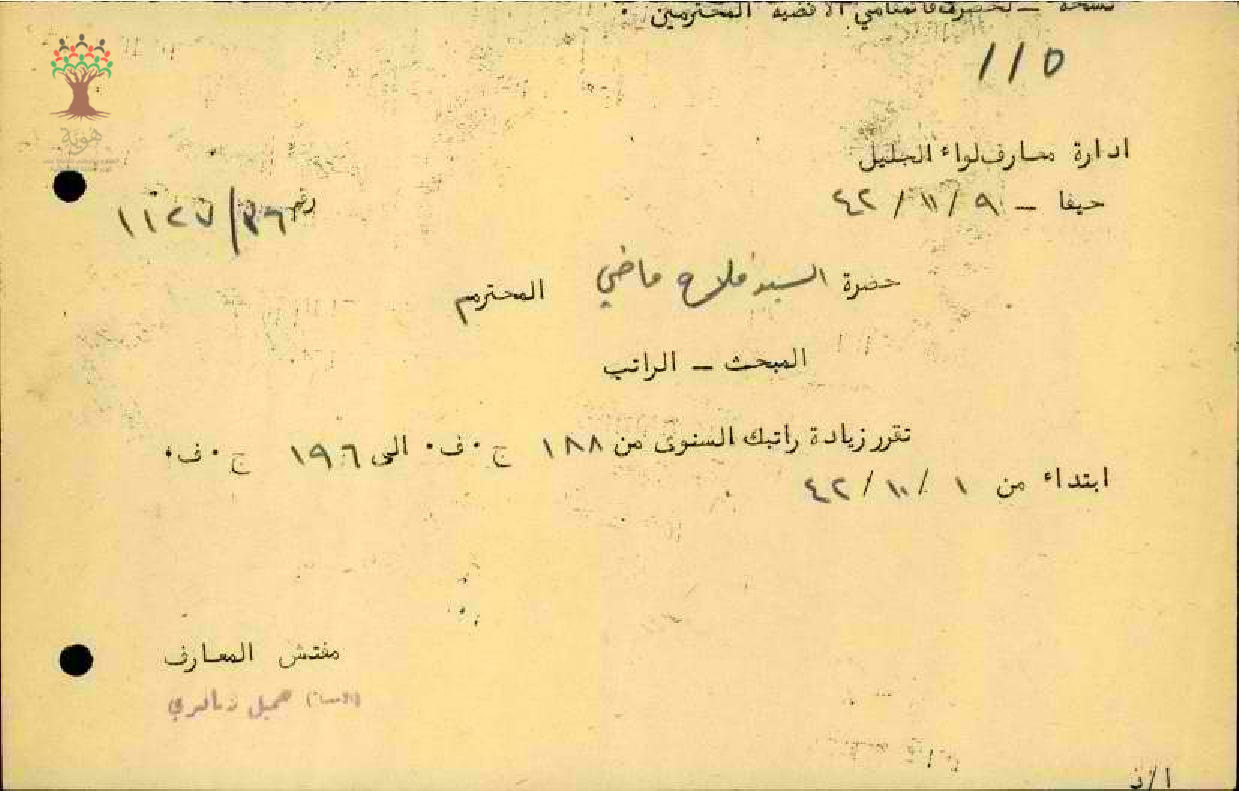 نسخة – لحضرة قائمقامي الاقضية المحترمين ٠
١١٥
هوية
ادارة معارف لواء الجليل
حيفا – ٩/ ١١/ ٤٢
رقم ٣٦/ ١١٢٧
حضرة السيد فلاح ماضي المحترم
المبحث – الراتب
تقرر زيادة راتبك السنوى من ١٨٨ ج٠ف٠ الى ١٩٦ ج٠ف٠
ابتداء من ١ /١٠/ ٤٢
مفتش المعارف
جميل
ا/ف